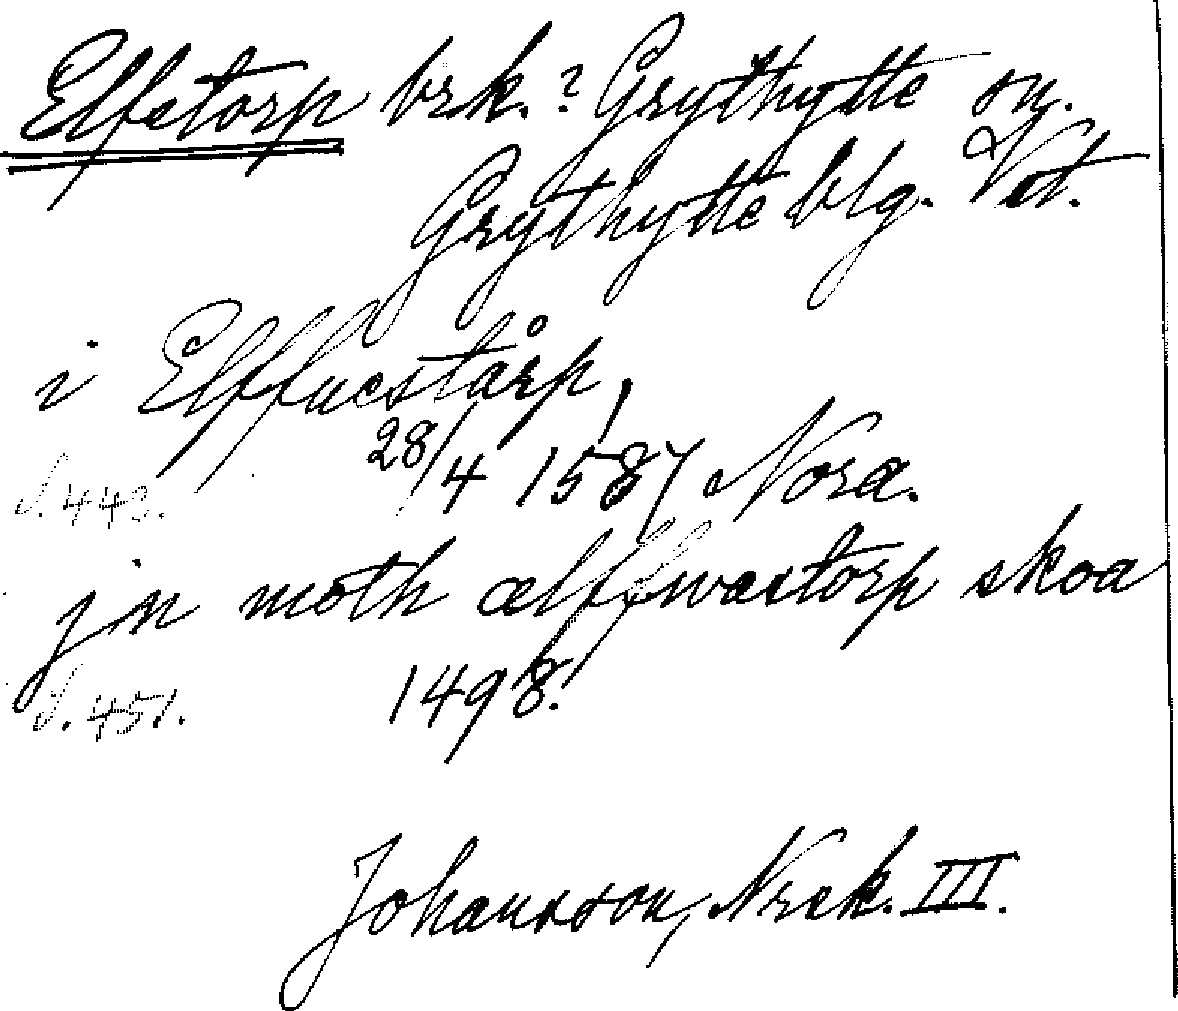 Elfetorp brk.? Grythytte sn.
Grythytte blg. Vst.
i Elffuestårp,
28/4 1587 Nora.
S. 443.
jn moth ælffwæstorp skoa
1498.
S. 451.
Johansson, Nrck. III.